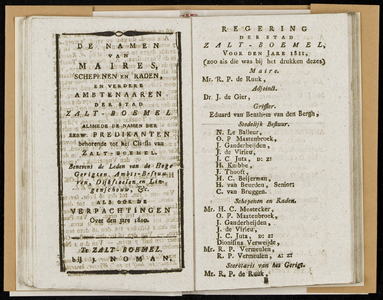 DE NAMEN
VAN
MAIRES,
SCHEPENEN EN RADEN,
EN VERDERE
AMBTENAAREN
DER STAD
ZALT-BOEMEL
ALSMEDE DE NAMEN DER
EERW. PREDIKANTEN
behorende tot het Classis van
ZALT-BOEMEL
Benevens de Leden van de Hoge
Gerigten, Ambts-Bestuu-
ren, Dijkstoelen en Lin-
genschouw, &c.
ALS OOK DE
VERPACHTINGEN
Over den jare
Te ZALT-BOEMEL.
bij J. NOMAN,
REGERING
DER STAD
ZALT-BOEMEL,
VOOR DEN JARE 1811,
(zoo als die was bij het drukken dezes)
Maire.
Mr. R. P. de Ruuk,
Adjoinct.
Dr. J. de Gier,
Griffier.
Eduard van Benthem van den Bergh,
Stedelijk Bestuur.
N. Le Balleur,
O. P. Maatenbroek,
J. Ganderheijden,
J. de Virieu,
J. C. Juta, D: zt
H. Knibbe,
J. Thooft,
H. C. Beijerman,
H. van Beurden, Senior;
C. van Bruggen.
Schepenen en Raden.
Mr. H. C.
O. P. Maatenbroek,
J. Ganderheijden,
J. de Virieu,
J. C. Juta, D: zt
Dionisius Verweijde,
Mr. R. P. Vermeulen,
R. P. Vermeulen, A: zt
Secretaris van het Gerigt.
Mr. R. P. de Ruuk,